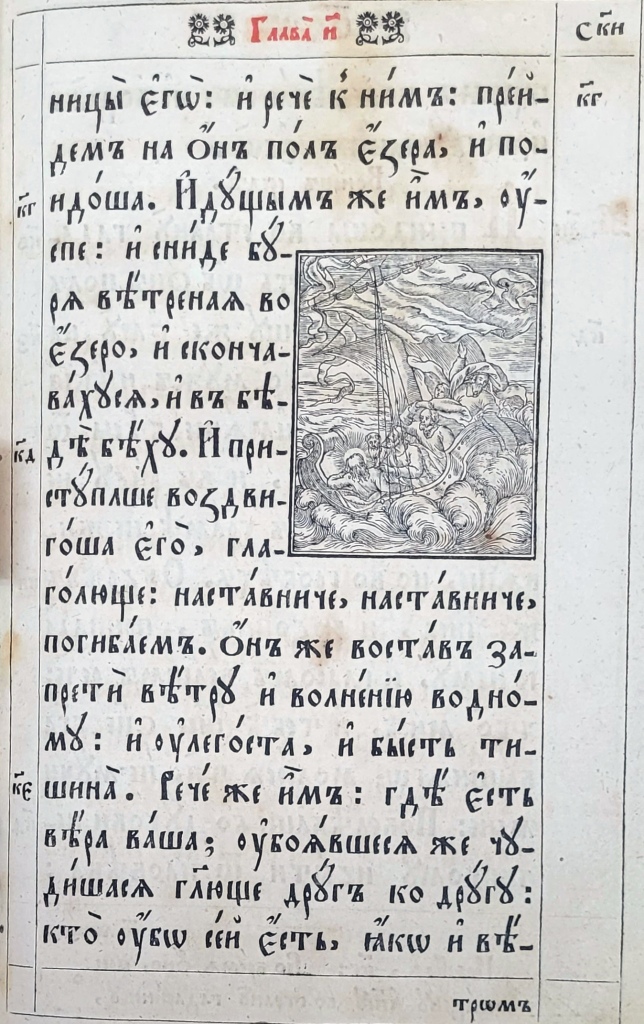 Глава̀ и҃ С҃ки
ницы̀ є҆гѡ̀: и҆ речѐ к̾ ни́мъ: пре́й- к҃г
демъ на ѻ҆́нъ по́лъ є҆́зера, и҆ по-
к҃г идо́ша. И҆дꙋ́щымъ же и҆̀мъ, оу҆-
спе: и҆ сни́де бꙋ́-
рѧ вѣ́тренаѧ во
є҆́зеро, и҆ сконча-
ва́хꙋсѧ, и҆ въ бѣ-
к҃д дѣ̀ бѣ́хꙋ. И҆ при-
стꙋ́пльше воздви-
го́ша є҆го̀, гла-
го́люще: наста́вниче, наста́вниче,
погиба́емъ. Ѻ҆́нъ же воста́в за-
претѝ вѣ́трꙋ и҆ волне́нїю водно́-
мꙋ: и҆ оу҆лего́ста, и҆ бы́сть ти-
к҃є шина̀. Рече́ же и҆̀мъ: гдѣ̀ є҆́сть
вѣ́ра ва́ша; оу҆боѧ́вшеесѧ же чꙋ-
ди́шасѧ гл҃юще дрꙋ́гъ ко дрꙋ́гꙋ:
кто̀ оу҆́бѡ се́й є҆́сть, ꙗ҆́кѡ и҆ вѣ́-
трѡмъ